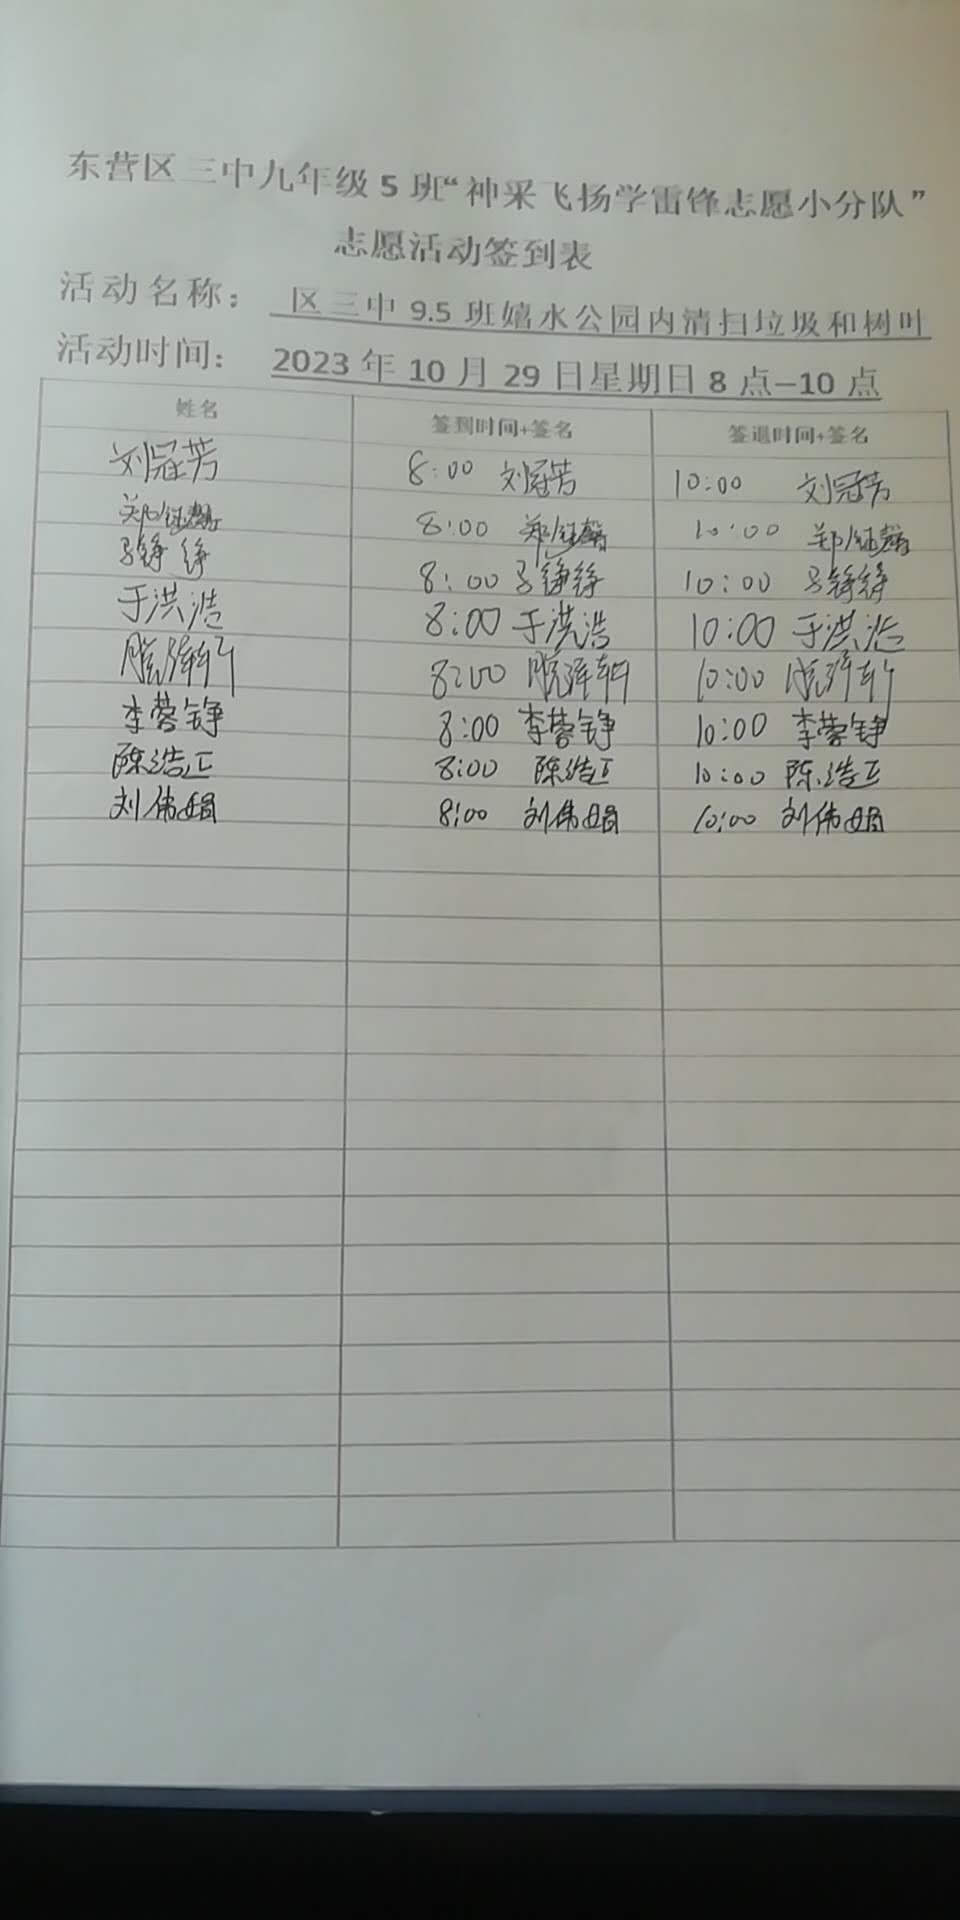 东营区三中九年级5班“神采飞扬学雷锋志愿小分队”
志愿活动签到表
活动名称： 区三中9.5班嬉水公园内清扫垃圾和树叶
活动时间： 2023年10月29日星期日8点—10点
姓名 签到时间+签名 签退时间+签名
刘冠芳 8:00 刘冠芳 10:00 刘冠芳
郑钰馨 8:00 郑钰馨 10:00 郑钰馨
马铮铮 8:00 马铮铮 10:00 马铮铮
于洪浩 8:00 于洪浩 10:00 于洪浩
8:00 10:00
李蓉铮 8:00 李蓉铮 10:00 李蓉铮
陈浩正 8:00 陈浩正 10:00 陈浩正
刘伟娟 8:00 刘伟娟 10:00 刘伟娟